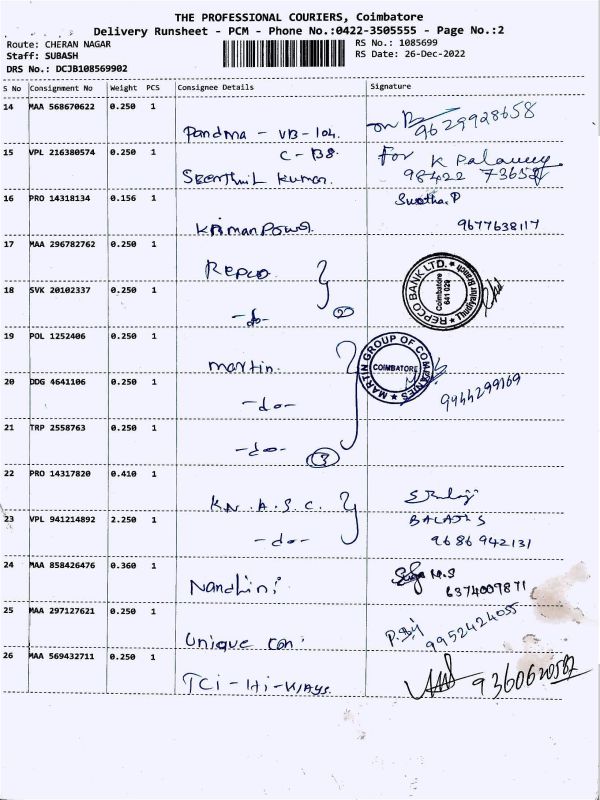 THE PROFESSIONAL COURIERS, Coimbatore
Delivery Runsheet - PCM - Phone No.:0422-3505555 - Page No.:2
Route: CHERAN NAGAR
Staff: SUBASH
DRS No.: DCJB108569902
RS No.: 1085699
RS Date: 26-Dec-2022
S No Consignment No Weight PCS Consignee Details Signature
14 MAA 568670622 0.250 1
Pandma - VB-104. 9629928658
15 VPL 216380574 0.250 1
C-B8. For K Palaniswamy
Senthil Kumar. 98422 73652
16 PRO 14318134 0.156 1
Swatha.P
Kriman Power 9677638117
17 MAA 296782762 0.250 1
Repco
REPCO BANK LTD. ★ Thudiyalur Branch ★
Coimbatore
641 029
18 SVK 20102337 0.250 1
-do- 2
19 POL 1252406 0.250 1
martin.
MARTIN GROUP OF COMPANIES ★
COIMBATORE
20 DDG 4641106 0.250 1
-do- 9944299169
21 TRP 2558763 0.250 1
-do- 3
22 PRO 14317820 0.410 1
K.N.A.S.C.
23 VPL 941214892 2.250 1
BALAJI S
-do- 9686942131
24 MAA 858426476 0.360 1
M.S
Nandhini 6374009871
25 MAA 297127621 0.250 1
Unique Con: 9952424055
26 MAA 569432711 0.250 1
TCi-Hi-Ways 9360620587